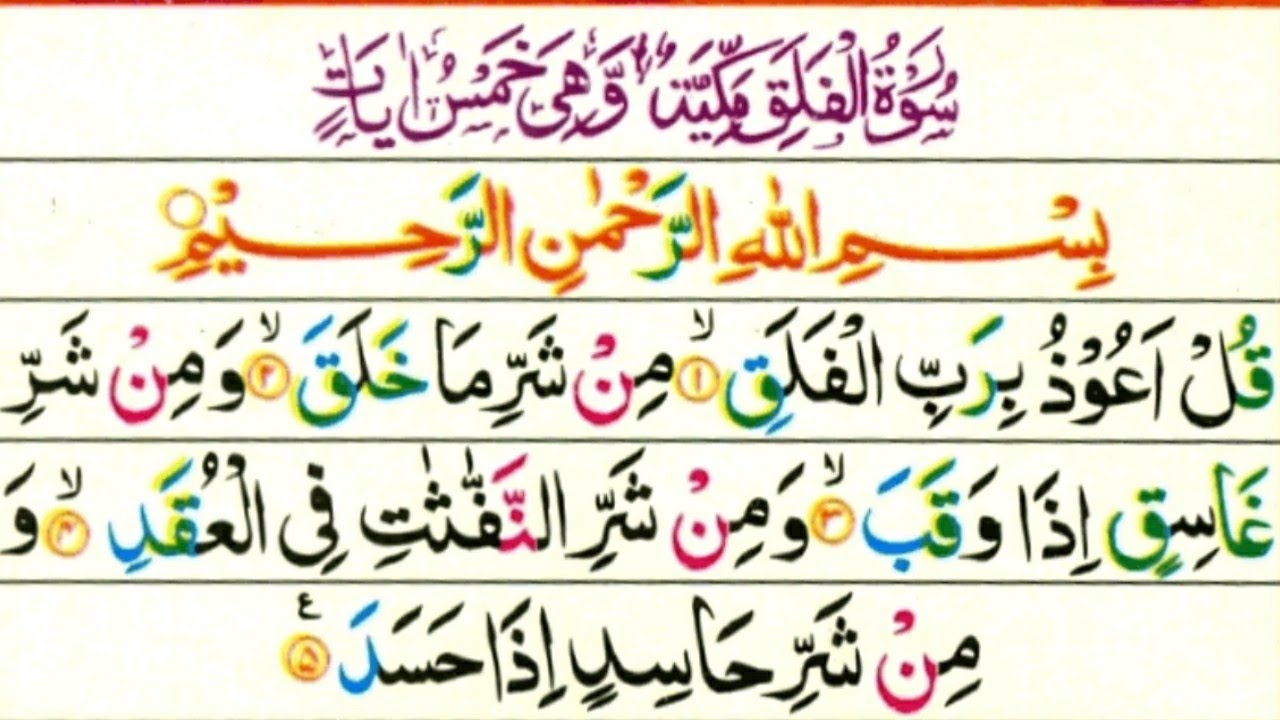 سُوْرَةُ الْفَلَقِ مَكِّيَّةٌ وَّهِيَ خَمْسُ اٰيَاتٍ
بِسْمِ اللّٰهِ الرَّحْمٰنِ الرَّحِيْمِ
قُلْ اَعُوْذُ بِرَبِّ الْفَلَقِ ۙ﴿۱﴾ مِنْ شَرِّ مَا خَلَقَ ۙ﴿۲﴾ وَمِنْ شَرِّ
غَاسِقٍ اِذَا وَقَبَ ۙ﴿۳﴾ وَمِنْ شَرِّ النَّفّٰثٰتِ فِی الْعُقَدِ ۙ﴿۴﴾ وَ
مِنْ شَرِّ حَاسِدٍ اِذَا حَسَدَ ﴿۵﴾ ع